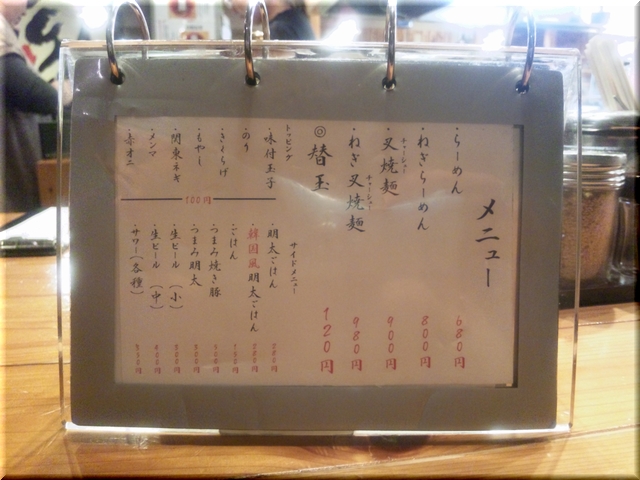 メニュー
・らーめん 680円
・ねぎらーめん 800円
・叉焼麺 900円
チャーシュー
・ねぎ叉焼麺 980円
チャーシュー
◎替玉 120円
トッピング
・味付玉子
・のり
・きくらげ
・もやし
・関東ネギ
・メンマ
・赤オニ
100円
サイドメニュー
・明太ごはん
・韓国風明太ごはん
・ごはん
・つまみ焼き豚
・つまみ明太
・生ビール(小)
・生ビール(中)
・サワー(各種)